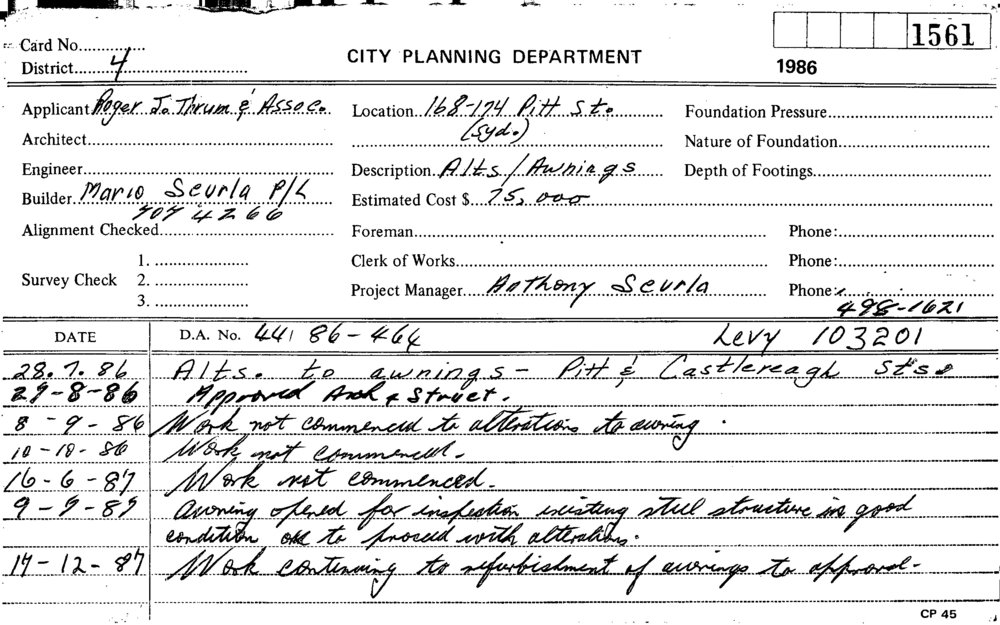 1561
Card No...............
CITY PLANNING DEPARTMENT
District 4
1986
Applicant Roger J. Thrum & Assoc.
Location 168-174 Pitt St.
Foundation Pressure
(Syd.)
Architect
Nature of Foundation
Engineer
Description Alts/Awnings
Depth of Footings
Builder Mario Scurla P/L
Estimated Cost $ 75,000
707 4266
Alignment Checked
Foreman
Phone:
1.
Clerk of Works
Phone:
Survey Check 2.
Project Manager Anthony Scurla
Phone:
3.
498-1621
DATE
D.A. No. 44/86-464
Levy 103201
28.7.86 Alts. to awnings - Pitt & Castlereagh Sts.
29-8-86 Approved Arch & Struct.
8-9-86 Work not commenced to alterations to awning.
10-10-86 Work not commenced.
16-6-87 Work not commenced.
9-9-87 Awning opened for inspection existing steel structure in good
condition ok to proceed with alterations.
17-12-87 Work continuing to refurbishment of awnings to approval.
CP 45